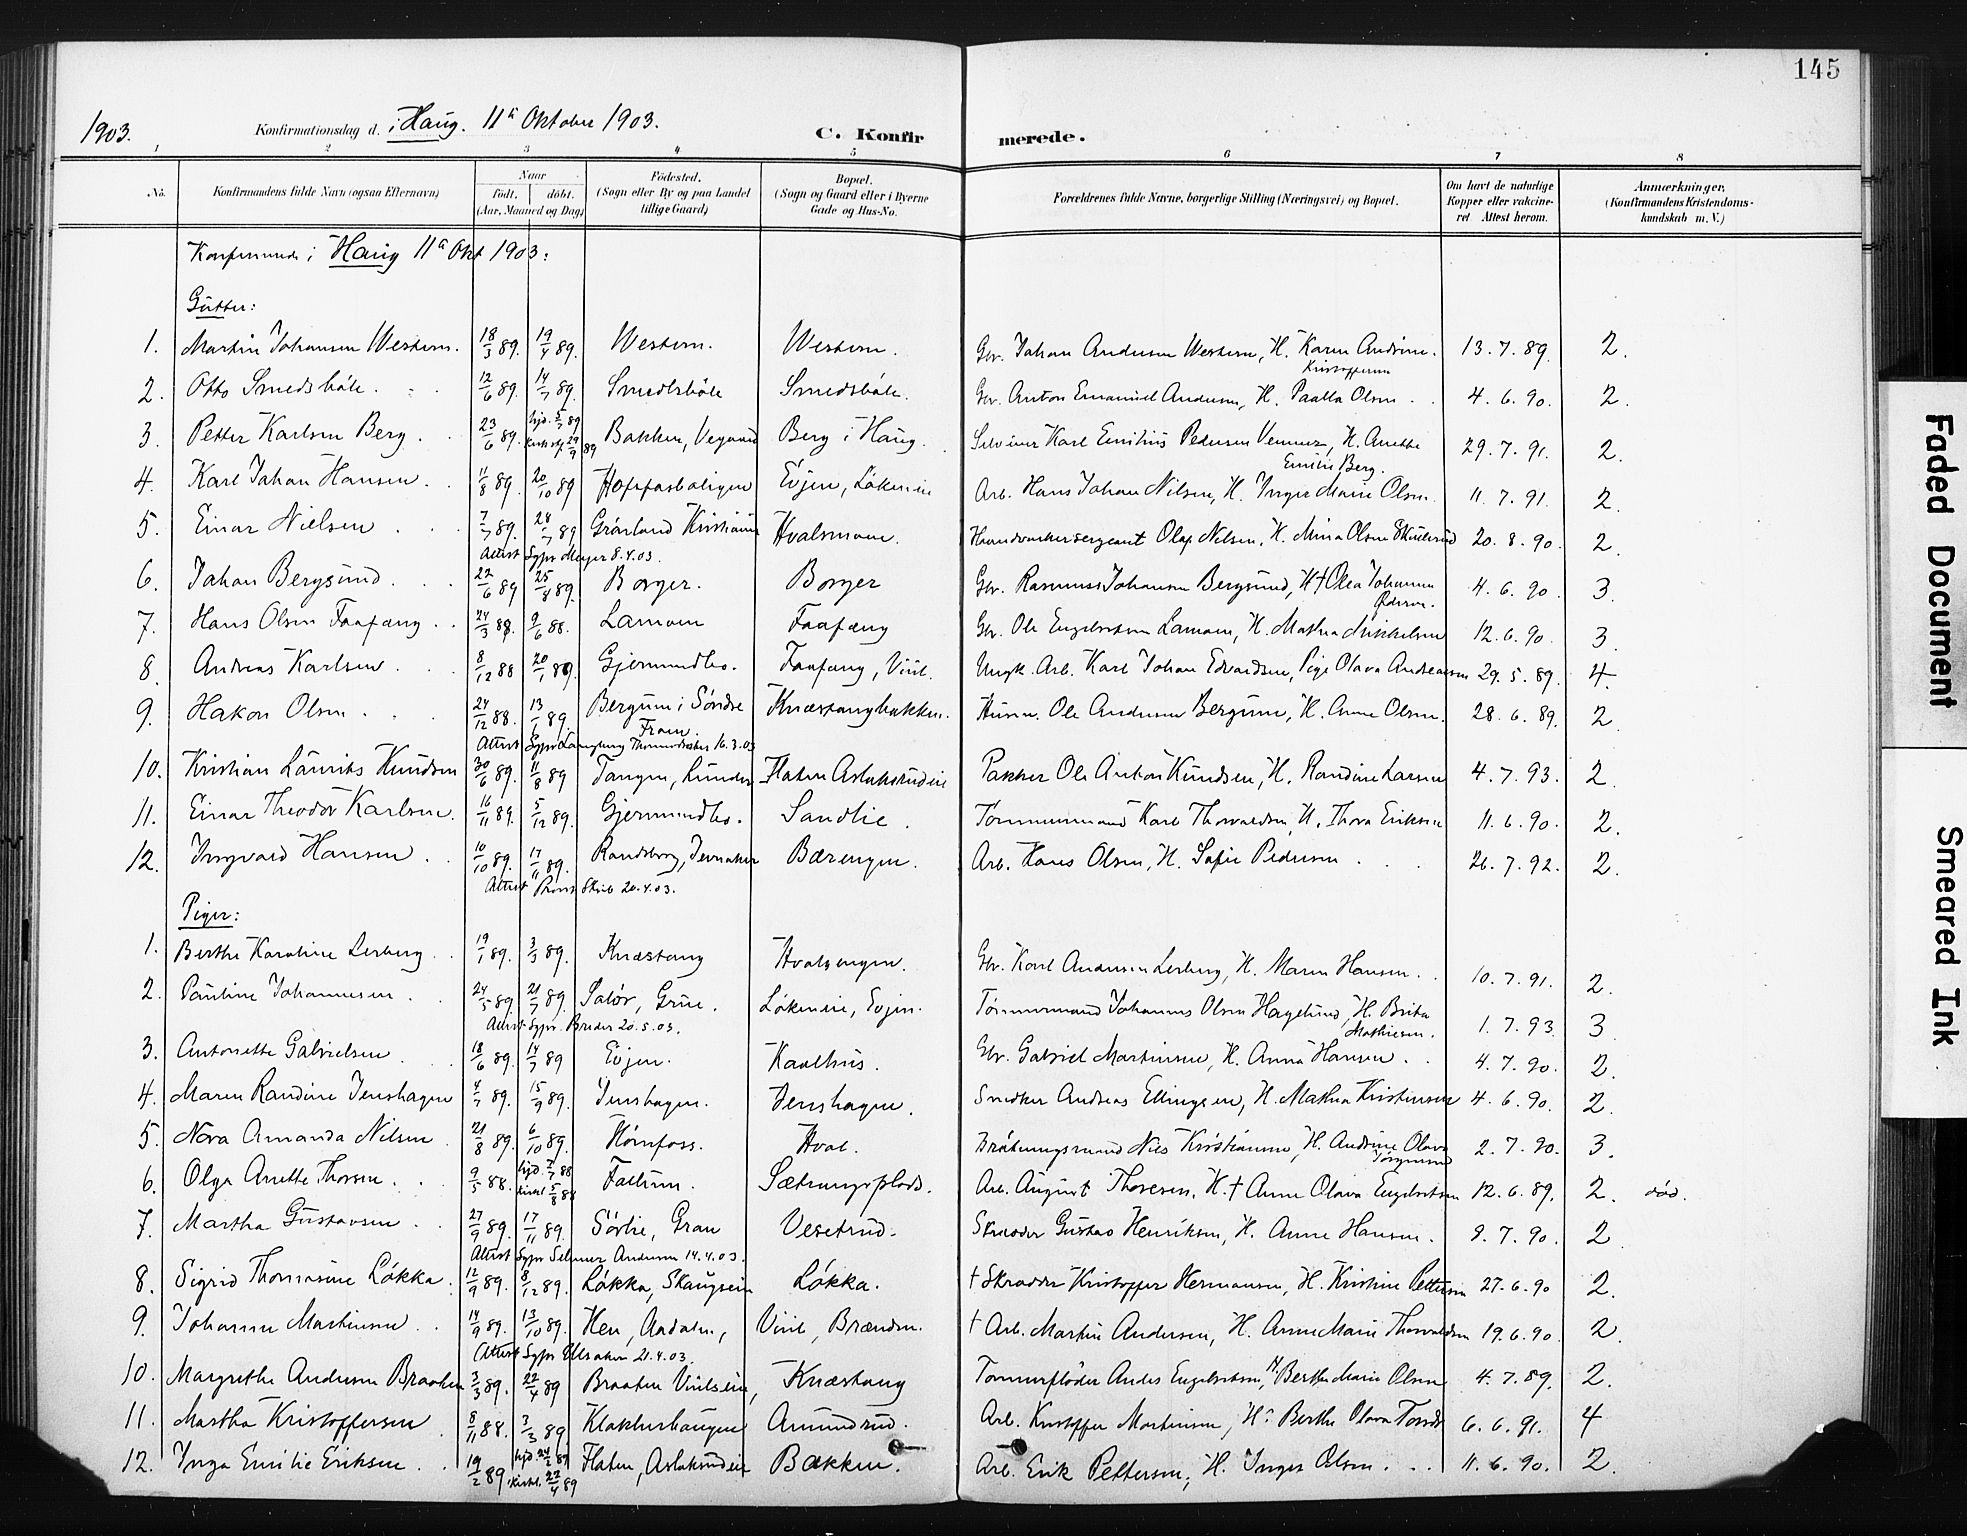 145
1903. Konfirmationsdag d. i Haug. 11te Oktober 1903. C. Konfirmerede.
1 2 3 4 5 6 7 8
No. Konfirmandens fulde Navn (ogsaa Efternavn) Naar født. døbt. (Aar, Maaned og Dag) Fødested. (Sogn eller By og paa Landet tillige Gaard) Bopæl. (Sogn og Gaard eller i Byerne Gade og Hus-No. Forældrenes fulde Navne, borgerlige Stilling (Næringsvei) og Bopæl. Om havt de naturlige Kopper eller vaccineret Attest herom. Anmærkninger. (Konfirmandens Kristendomskundskab m. V.)
i Haug 11te Okt 1903:
Gutter:
1. Martin Johansen Western. 18/3 89. 19/4 89. Western. Western. Gbr. Johan Andersen Western, H. Karen Andrine Kristoffersen 13.7.89. 2.
2. Otto Smedsbøle. 12/6 89. 14/7 89. Smedsbøle Smedsbøle. Gbr. Anton Emanuel Andersen, H. Olsen 4.6.90. 2.
3. Petter Karlsen Berg. 23/6 89. hjd. 5/7 89 29/9 89 Bakken, Vegaard Berg i Haug. Karl Emilius Pedersen, H. Anette Emilie Berg. 29.7.91. 2.
4. Karl Johan Hansen. 11/8 89. 20/10 89 Evjen, Løkeneie Arb. Hans Johan Nilsen, H. Inger Marie Olsen. 11.7.91. 2.
5. Einar Nielsen 7/7 89. 28/7 89. Grønland Kristiania Hvalsmoen. Haandverkersergeant Olaf Nilsen, H. Mina Olsen 20.8.90. 2.
Attest Sgpr. Meyer 8.4.03.
6. Johan Bergsund. 22/6 89 25/8 89. Borger. Borger Gbr. Rasmus Johansen Bergsund, H. † Olea Johanne 4.6.90. 3.
7. Hans Olsen Faafæng. 24/3 88. 9/6 88. Lamoen Faafæng Gbr. Ole Engebretsen Lamoen, H. Mathea Mikkelsen 12.6.90. 3.
8. Andreas Karlsen. 8/12 88 20/1 89. Gjermundbo. Faafæng, Viul. Ungk. Arb. Karl Johan Edvardsen, Pige Olava Andreasen 29.5.89. 4.
9. Hakon Olsen. 24/12 88. 13/1 89. Bergum i Søndre Fron. Knæstangbakken. Husm. Ole Andersen Bergum, H. Anne Olsen. 28.6.89. 2.
Attest Sgpr. 16.3.03
10. Kristian Laurits Knudsen 30/6 89. 11/8 89 Tangen, Lunder Flaten Aslaksrudeie Pakker Ole Anton Knudsen, H. Randine Larsen 4.7.93. 2.
11. Einar Theodor Karlsen. 16/11 89. 5/12 89. Gjermundbo. Sandlie. Tømmermand Karl Thorvaldsen, H. Thora Eriksen 11.6.90. 2.
12. Ingvald Hansen. 10/10 89. 17/11 89. Randsborg, Jevnaker Bærengen. Arb. Hans Olsen, H. Sofie Pedersen 26.7.92. 2.
Attest 20.4.03.
Piger:
1. Berthe Karoline Lerberg. 19/1 89. 3/3 89. Knæstang Hvalsengen. Gbr. Karl Andersen Lerberg, H. Maren Hansen. 10.7.91. 2.
2. Pauline Johannesen. 24/5 89. 21/7 89. Solør, Grue. Løkeneie, Evjen. Tømmermand Johannes Olsen Hagelund, H. Brita Mathiesen. 1.7.93. 3
Attest Sgpr. 20.5.03.
3. Antonette Gabrielsen 18/6 89. 14/7 89 Evjen. Kaalhus. Gbr. Gabriel Martinsen, H. Anna Hansen. 4.7.90. 2.
4. Maren Randine Jenshagen 4/7 89. 15/9 89. Jenshagen. Jenshagen. Snedker Andreas Ellingsen, H. Mathea Kristensen 4.6.90. 2.
5. Nora Amanda Nilsen 21/8 89. 6/10 89. Hønefoss. Hval. Nils Kristiansen, H. Andrine Olava Jørgensen 2.7.90. 3.
6. Olga Anette Thoresen. 9/5 88. hjd. 2/7 88 5/8 88 Fallum. Sætrangsplads. Arb. August Thoresen, H. † Anne Olava Engebretsen 12.6.89. 2. død.
7. Martha Gustavsen 27/9 89. 17/11 89. Sørlie, Gran Vesetrud. Skræder Gustav Henriksen, H. Anne Hansen. 9.7.90. 2
Attest Sgpr Selmer Andersen 14.4.03.
8. Sigrid Thomasine Løkka. 12/9 89. 8/12 89. Løkka, Skaugseie Løkka. † Skrædder Kristoffer Hermansen, H. Kristine Pettersen 27.6.90 2.
9. Johanne Martinsen 14/9 89. 13/10 89. Hen, Aadalen, Viul, Brænden. † Arb. Martin Andersen, H. Anne Marie Thorvaldsen 19.6.90. 2.
Attest Sgpr 21.4.03.
10. Margrethe Andersen Braaten 3/3 89. 22/4 89 Braaten Viulseie, Knæstang Tømmerfløder Anders Engebretsen, H. Berthe Marie Olsen 4.7.89. 2.
11. Martha Kristoffersen 8/11 88. 3/3 89 Klækkenhaugen Amundrud. Arb. Kristoffer Martinsen, H. Berthe Olava 6.6.91. 4
12. Inga Emilie Eriksen. 19/2 89 hjd. 24/2 89 22/4 89 Flaten, Aslaksrudeie Bakken. Arb. Erik Pettersen, H. Inger Olsen. 11.6.90. 2.
Faded Document
Smeared Ink